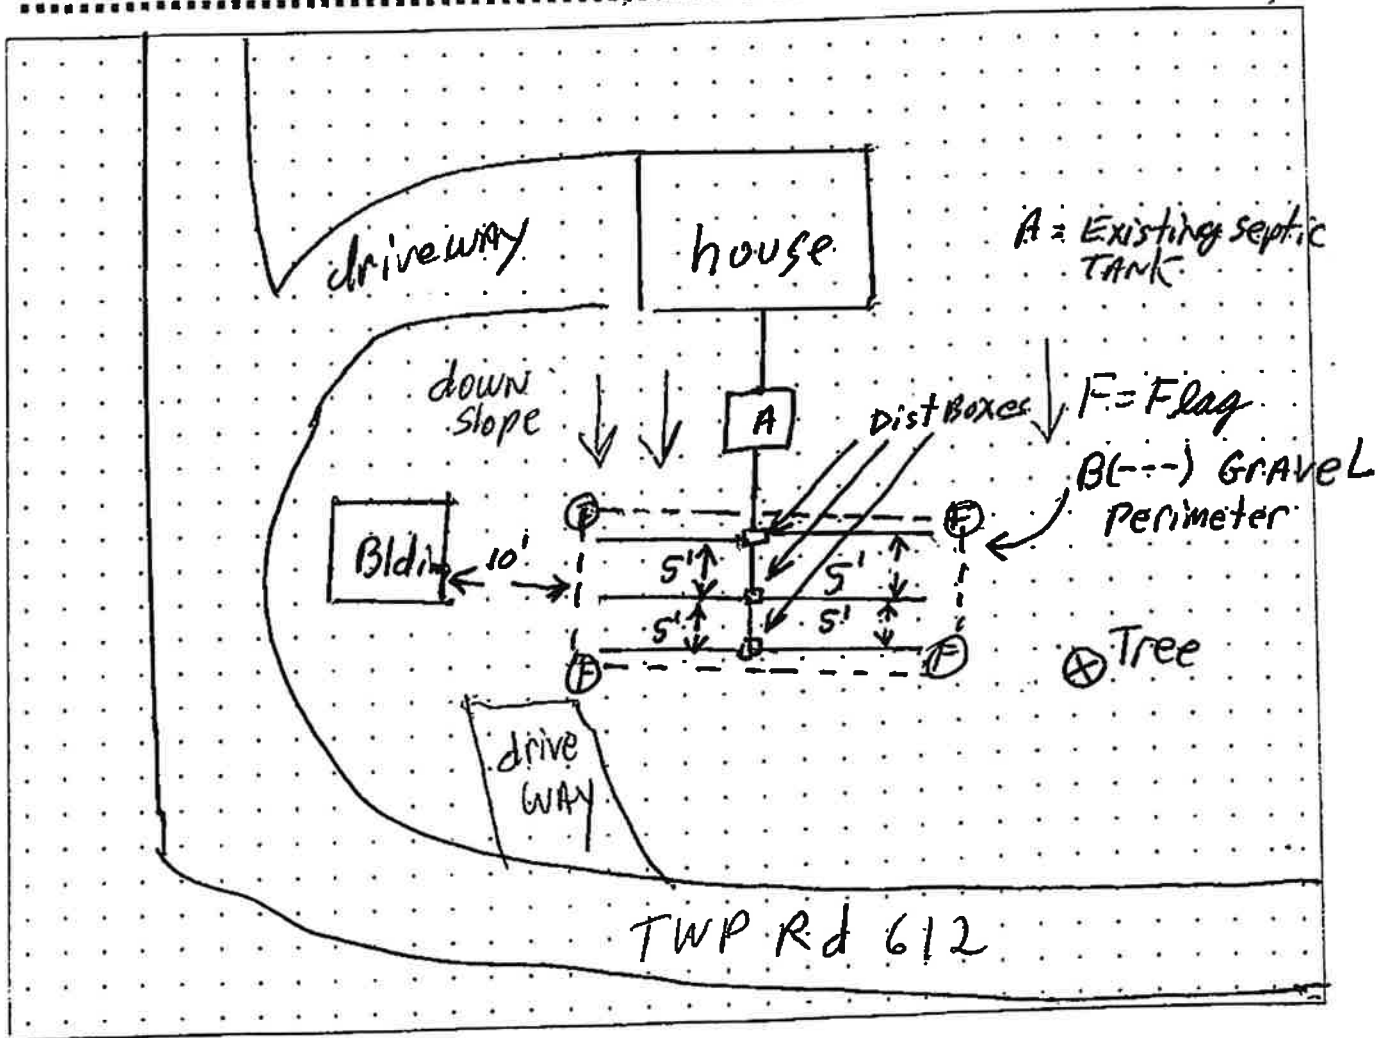 driveway
house
A = Existing septic
TANK
down
slope
A
Dist Boxes
F = Flag
B(---) Gravel
Perimeter
F
F
Bldin
10'
5'
5'
5'
5'
F
F
Tree
drive
way
TWP Rd 612